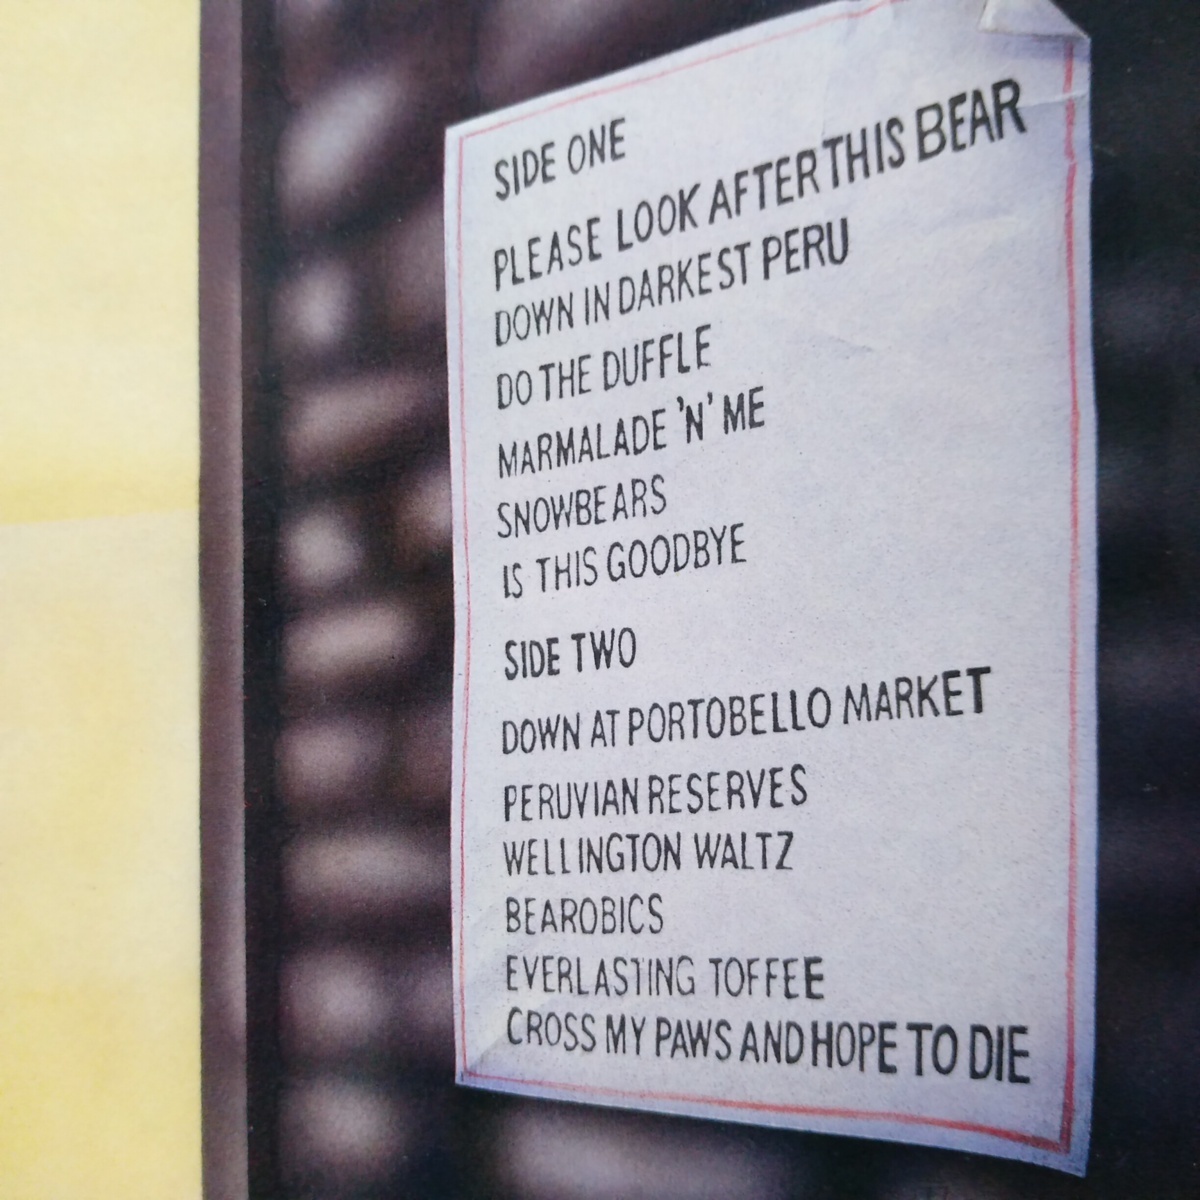 SIDE ONE
PLEASE LOOK AFTER THIS BEAR
DOWN IN DARKEST PERU
DO THE DUFFLE
MARMALADE 'N' ME
SNOWBEARS
IS THIS GOODBYE
SIDE TWO
DOWN AT PORTOBELLO MARKET
PERUVIAN RESERVES
WELLINGTON WALTZ
BEAROBICS
EVERLASTING TOFFEE
CROSS MY PAWS AND HOPE TO DIE